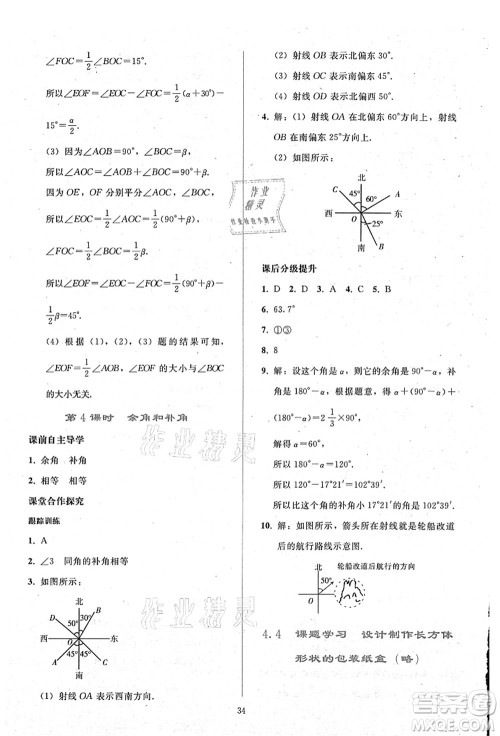 ∠FOC=1/2∠BOC=15°.
所以∠EOF=∠EOC-∠FOC=1/2(α+30°)-
15°=α/2.
(3)因为∠AOB=90°,∠BOC=β,
所以∠AOC=90°+β.
因为OE,OF分别平分∠AOC,∠BOC,
所以∠EOC=1/2∠AOC=1/2(90°+β),
∠FOC=1/2∠BOC=1/2β.
所以∠EOF=∠EOC-∠FOC=1/2(90°+β)-
1/2β=45°.
(4)根据(2)(3)题的结果可知,
∠EOF=1/2∠AOB,∠EOF的大小与∠BOC
的大小无关.
第4课时 余角和补角
课前自主导学
1. 余角 补角
2. 相等 相等
课堂合作探究
跟踪训练
1. A
2. ∠3 同角的补角相等
3. 如图所示:
北
D
30°
B
50°
西
东
O
45°
45°
A
南
C
(1)射线OA表示西南方向.
(2)射线OB表示北偏东30°.
(3)射线OC表示南偏东45°.
(4)射线OD表示北偏西50°.
4. 解:(1)射线OA在北偏东60°方向上,射线
OB在南偏东25°方向上.
(2)如图所示:
北
C
45°
60°
A
西
东
O
25°
B
南
课后分级提升
1. D 2. D 3. A 4. C 5. C
6. 63.7°
7. ①③
8. 8
9. 解:设这个角的度数是α,则它的余角是
(90°-α),补角是(180°-α),根据题意,得
(180°-α)+(90°-α)=α+1/2×90°.
解得α=75°.
所以180°-α=105°.
所以17°21′+α=102°39′.
所以这个角的补角小17°21′是102°39′.
10. 解:如图所示,箭头所在的射线就是轮船改道
后的航行路线示意图.
北
轮船改道后航行的方向
50°
O
东
4.4 课题学习 设计制作长方体
形状的包装纸盒(略)
34
作业
精灵
作业精灵
答案圈
MXQE.COM